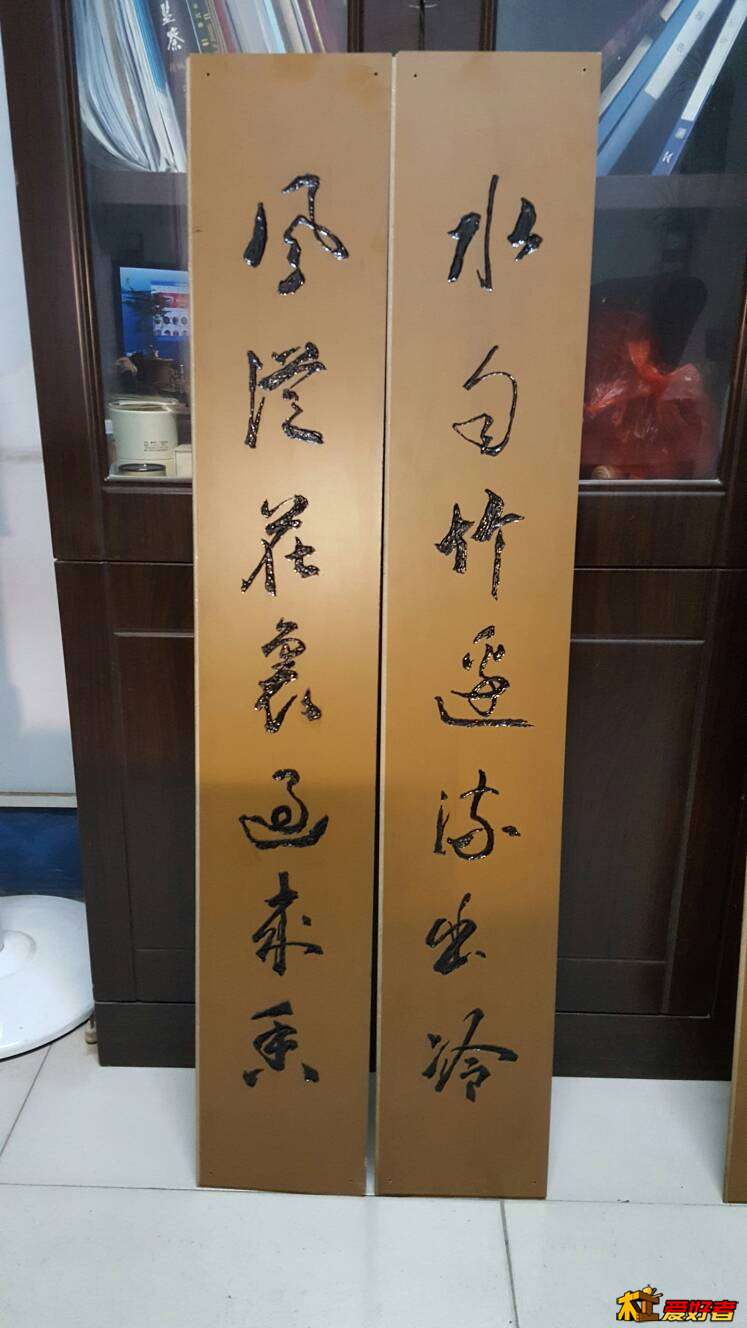 水自竹边流出冷
风从花里过来香
木工爱好者